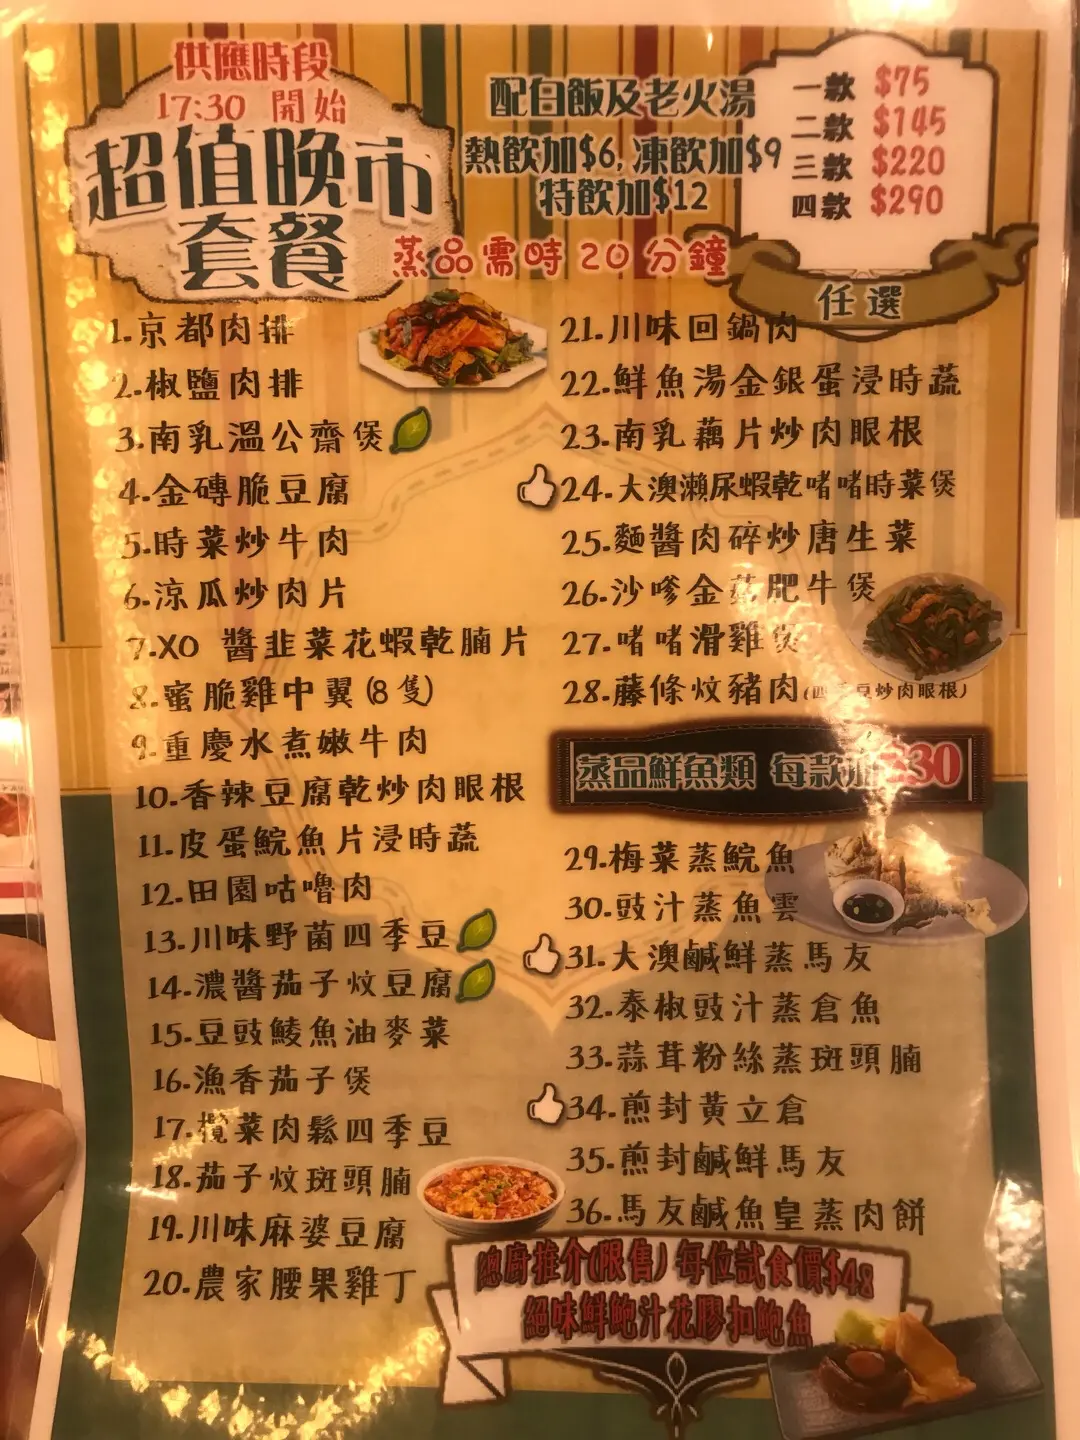 供應時段
17:30 開始
超值晚市
套餐
配白飯及老火湯
熱飲加$6, 凍飲加$9
特飲加$12
蒸品需時20分鐘
一款 $75
二款 $145
三款 $220
四款 $290
任選
1.京都肉排
2.椒鹽肉排
3.南乳溫公齋煲
4.金磚脆豆腐
5.時菜炒牛肉
6.涼瓜炒肉片
7.XO 醬韭菜花蝦乾腩片
8.蜜脆雞中翼(8隻)
9.重慶水煮嫩牛肉
10.香辣豆腐乾炒肉眼根
11.皮蛋鯇魚片浸時蔬
12.田園咕嚕肉
13.川味野菌四季豆
14.濃醬茄子炆豆腐
15.豆豉鯪魚油麥菜
16.漁香茄子煲
17.欖菜肉鬆四季豆
18.茄子炆斑頭腩
19.川味麻婆豆腐
20.農家腰果雞丁
21.川味回鍋肉
22.鮮魚湯金銀蛋浸時蔬
23.南乳藕片炒肉眼根
24.大澳瀨尿蝦乾啫啫時菜煲
25.麵醬肉碎炒唐生菜
26.沙嗲金菇肥牛煲
27.啫啫滑雞煲
28.藤條炆豬肉(四季豆炒肉眼根)
蒸品鮮魚類 每款加$30
29.梅菜蒸鯇魚
30.豉汁蒸魚雲
31.大澳鹹鮮蒸馬友
32.泰椒豉汁蒸倉魚
33.蒜茸粉絲蒸斑頭腩
34.煎封黃立倉
35.煎封鹹鮮馬友
36.馬友鹹魚皇蒸肉餅
總廚推介(限售) 每位試食價$48
絕味鮮鮑汁花膠扣鮑魚